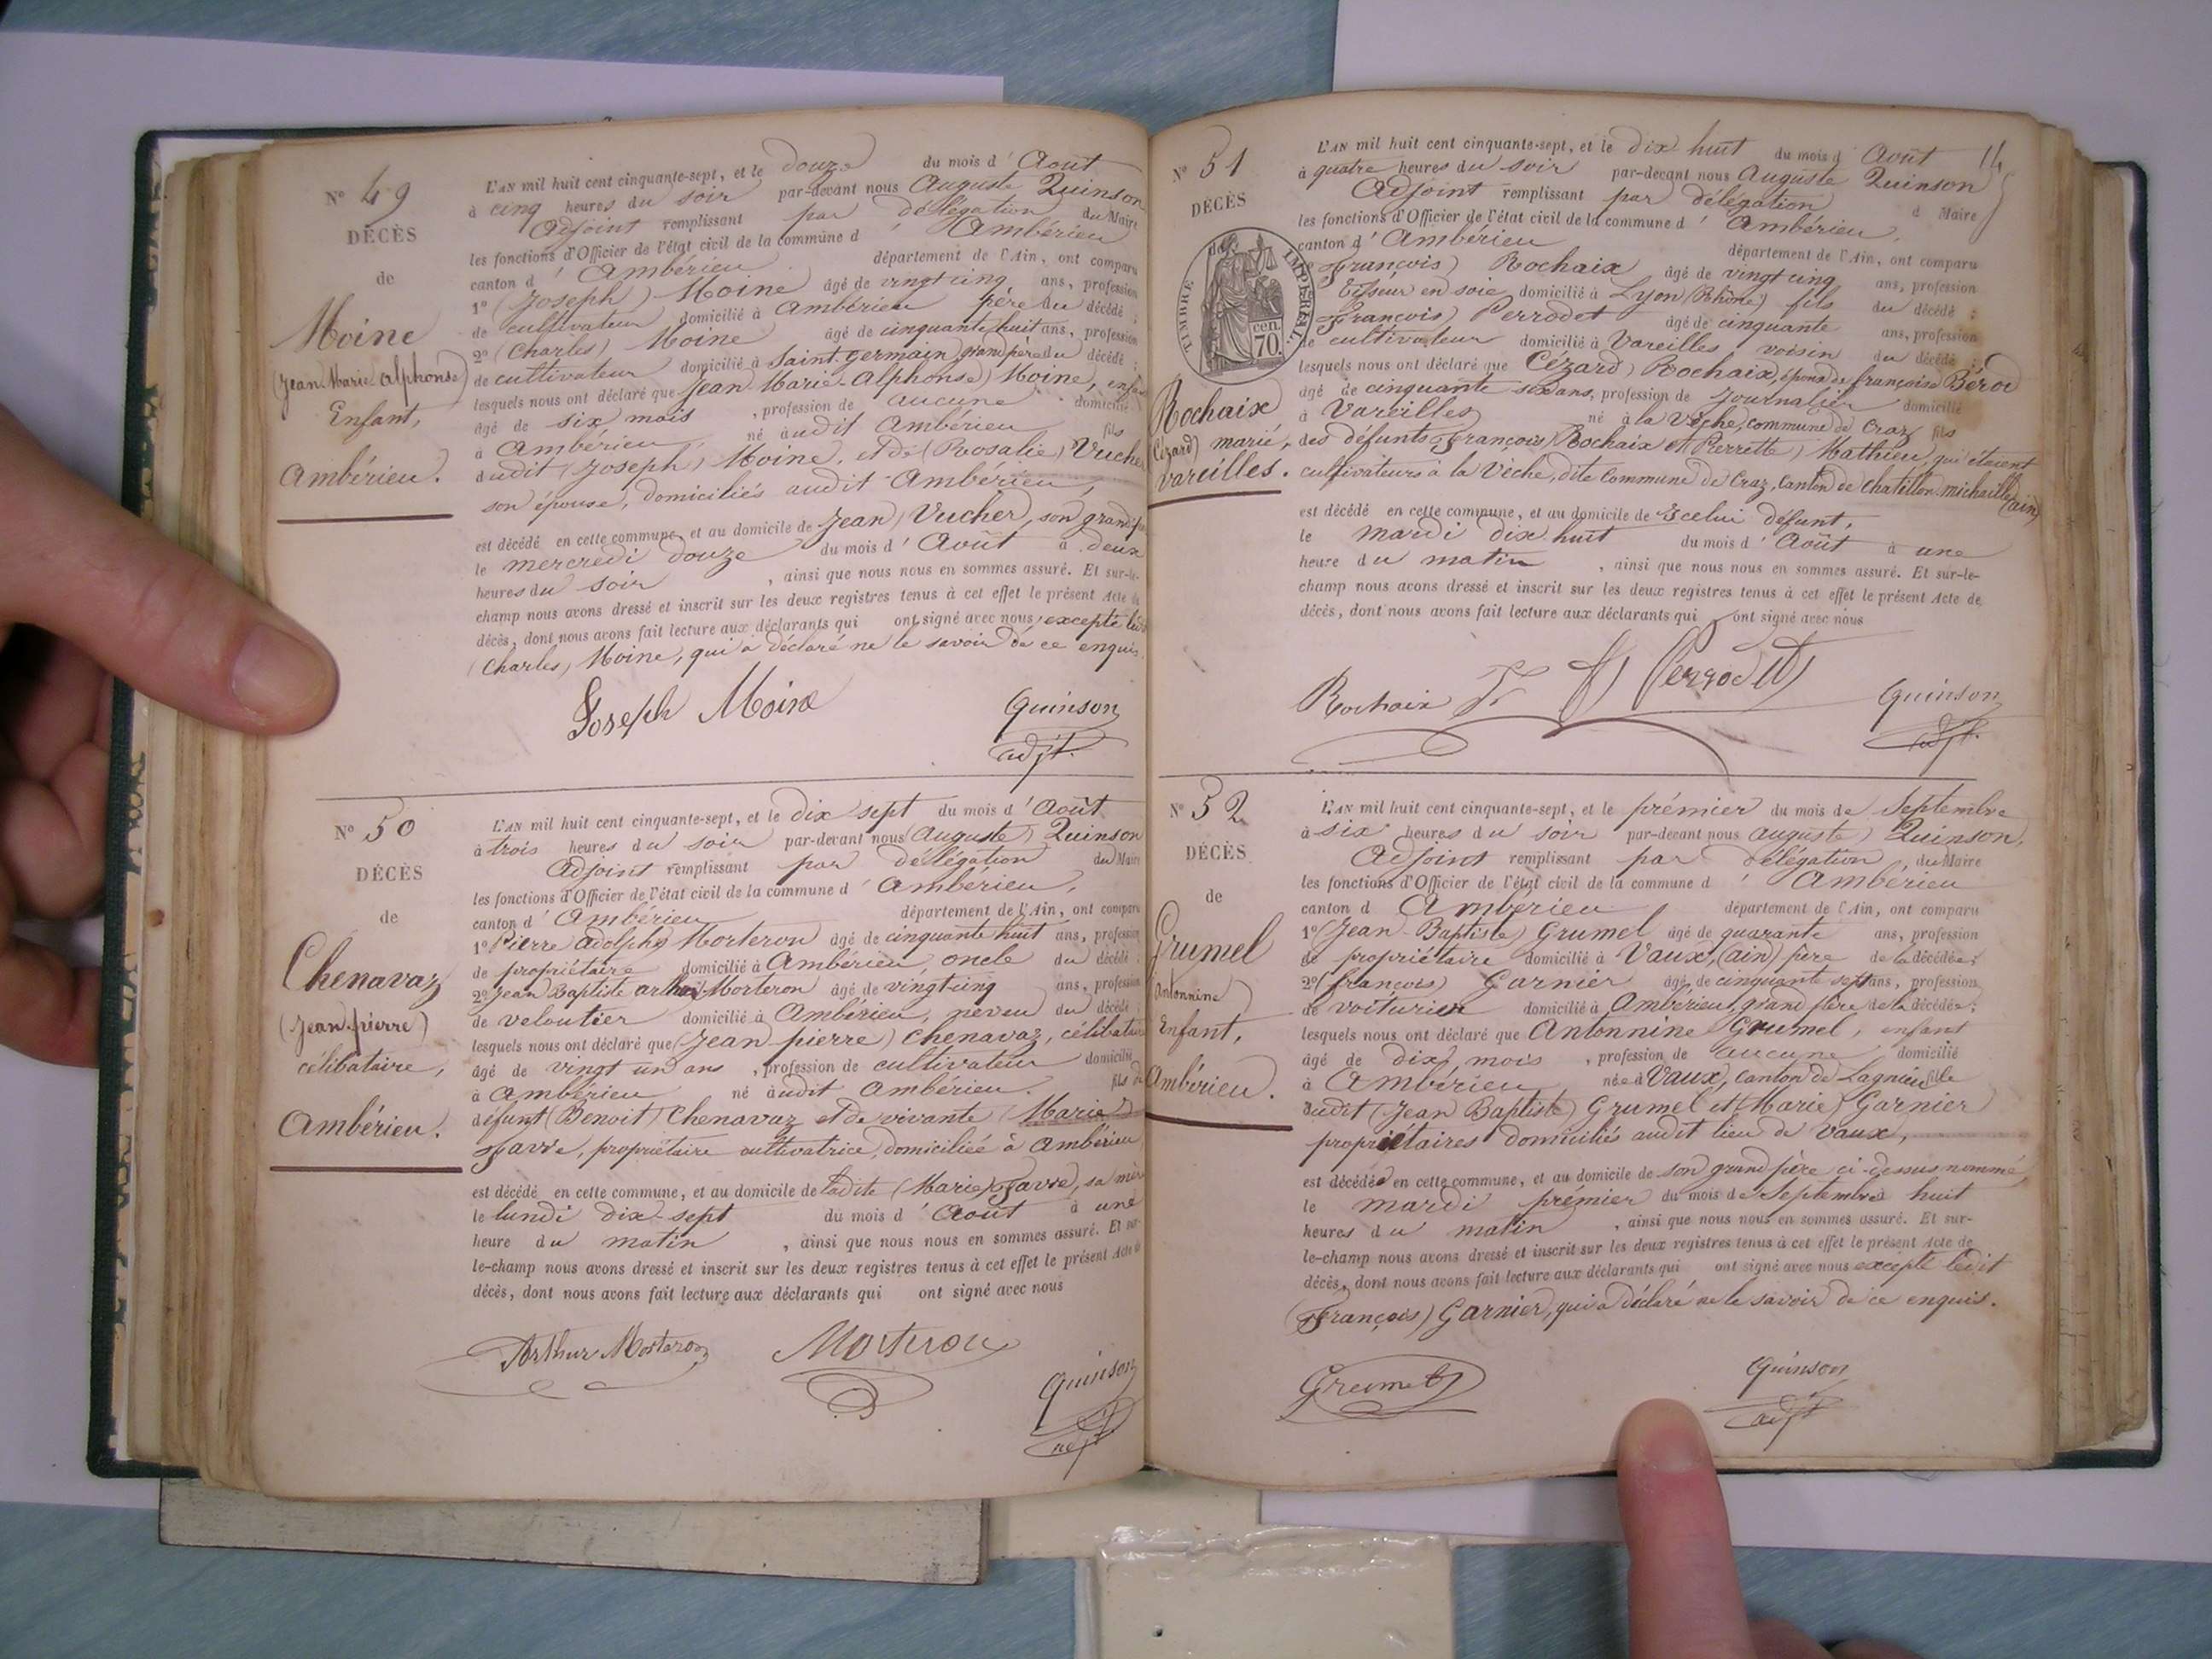 Nº 49
DÉCÈS
de
Moine
(Jean Marie Alphonse)
Enfant,
Ambérieu.
L'AN mil huit cent cinquante-sept, et le douze du mois d' Août
à cinq heures du soir par-devant nous Auguste Quinson
Adjoint remplissant par délégation du Maire
les fonctions d'Officier de l'état civil de la commune d' Ambérieu
canton d' Ambérieu département de l'Ain, ont comparu
1º (Joseph) Moine âgé de vingt cinq ans, profession
de cultivateur domicilié à Ambérieu père du décédé ;
2º (Charles) Moine âgé de cinquante huit ans, profession
de cultivateur domicilié à Saint-germain, grand père du décédé ;
lesquels nous ont déclaré que Jean-Marie-Alphonse) Moine, enfant
âgé de six mois , profession de aucune domicilié
à Ambérieu, né audit Ambérieu, fils
dudit (Joseph) Moine, et de (Rosalie) Vucher
son épouse, domiciliés audit Ambérieu,
est décédé en cette commune, et au domicile de Jean) Vucher, son grand père
le mercredi douze du mois d' Août à deux
heures du soir , ainsi que nous nous en sommes assuré. Et sur-le-
champ nous avons dressé et inscrit sur les deux registres tenus à cet effet le présent Acte de
décès, dont nous avons fait lecture aux déclarants qui ont signé avec nous, excepté ledit
(Charles) Moine, qui a déclaré ne le savoir de ce enquis.
Joseph Moine Quinson
adjt.
Nº 50
DÉCÈS
de
Chenavaz
(Jean-pierre)
célibataire,
Ambérieu.
L'AN mil huit cent cinquante-sept, et le dix sept du mois d' Août
à trois heures du soir par-devant nous (Auguste) Quinson
Adjoint remplissant par délégation du Maire
les fonctions d'Officier de l'état civil de la commune d' Ambérieu,
canton d' Ambérieu département de l'Ain, ont comparu
1º Pierre Adolphe Morteron âgé de cinquante huit ans, profession
de propriétaire domicilié à Ambérieu, oncle du décédé ;
2º Jean Baptiste Arthur Morteron âgé de vingt cinq ans, profession
de veloutier domicilié à Ambérieu, neveu du décédé ;
lesquels nous ont déclaré que (Jean pierre) Chenavaz, célibataire
âgé de vingt un ans , profession de cultivateur domicilié
à Ambérieu né audit Ambérieu. fils de
défunt (Benoit) Chenavaz et de vivante (Marie)
Favre, propriétaire cultivatrice, domiciliée à Ambérieu
est décédé en cette commune, et au domicile de ladite (Marie) Favre, sa mère
le lundi dix-sept du mois d' Août à une
heure du matin , ainsi que nous nous en sommes assuré. Et sur-
le-champ nous avons dressé et inscrit sur les deux registres tenus à cet effet le présent Acte de
décès, dont nous avons fait lecture aux déclarants qui ont signé avec nous
Arthur Morteron Morteron Quinson
adjt.
Nº 51
DÉCÈS
de
TIMBRE IMPÉRIAL
70 cen.
Rochaix
(Cézard) marié,
Vareilles.
L'AN mil huit cent cinquante-sept, et le dix huit du mois d' Août
à quatre heures du soir par-devant nous Auguste Quinson
Adjoint remplissant par délégation d Maire
les fonctions d'Officier de l'état civil de la commune d' Ambérieu,
canton d' Ambérieu département de l'Ain, ont comparu
François) Rochaix âgé de vingt cinq ans, profession
tisseur en soie, domicilié à Lyon (Rhône) fils du décédé ;
François) Perrodet âgé de cinquante ans, profession
de cultivateur domicilié à Vareilles voisin du décédé ;
lesquels nous ont déclaré que Cézard) Rochaix, époux de françoise Bérod
âgé de cinquante six ans, profession de journalier domicilié
à Vareilles né à la Vèche, commune de Craz fils
des défunts François) Rochaix et Pierrette) Mathieu qui étaient
cultivateurs à la Vèche, dite commune de Craz, canton de Chatillon-michaille (ain)
est décédé en cette commune, et au domicile de Icelui défunt,
le mardi dix huit du mois d' Août à une
heure du matin , ainsi que nous nous en sommes assuré. Et sur-le-
champ nous avons dressé et inscrit sur les deux registres tenus à cet effet le présent Acte de
décès, dont nous avons fait lecture aux déclarants qui ont signé avec nous
Rochaix Perrodet Quinson
adjt.
Nº 52
DÉCÈS
de
Grumel
Antonnine)
Enfant,
Ambérieu.
L'AN mil huit cent cinquante-sept, et le prémier du mois de Septembre
à six heures du soir par-devant nous Auguste) Quinson,
Adjoint remplissant par délégation, du Maire
les fonctions d'Officier de l'état civil de la commune d' Ambérieu
canton d Ambérieu département de l'Ain, ont comparu
1º (Jean-Baptiste) Grumel âgé de quarante ans, profession
de propriétaire domicilié à Vaux, (ain) père de la décédée ;
2º (françois) Garnier âgé de cinquante sept ans, profession
de voiturier domicilié à Ambérieu, grand père de la décédée ;
lesquels nous ont déclaré que Antonnine Grumel, enfant
âgé de dix mois , profession de aucune domicilié
à Ambérieu, née à Vaux, canton de Lagnieu fille
dudit (Jean Baptiste) Grumel et (Marie) Garnier
propriétaires domiciliés audit lieu de Vaux,
est décédée en cette commune, et au domicile de son grand père ci-dessus nommé
le mardi prémier du mois de Septembre à huit
heures du matin , ainsi que nous nous en sommes assuré. Et sur-
le-champ nous avons dressé et inscrit sur les deux registres tenus à cet effet le présent Acte de
décès, dont nous avons fait lecture aux déclarants qui ont signé avec nous excepté ledit
(François) Garnier, qui a déclaré ne le savoir de ce enquis.
Grumel Quinson
adjt